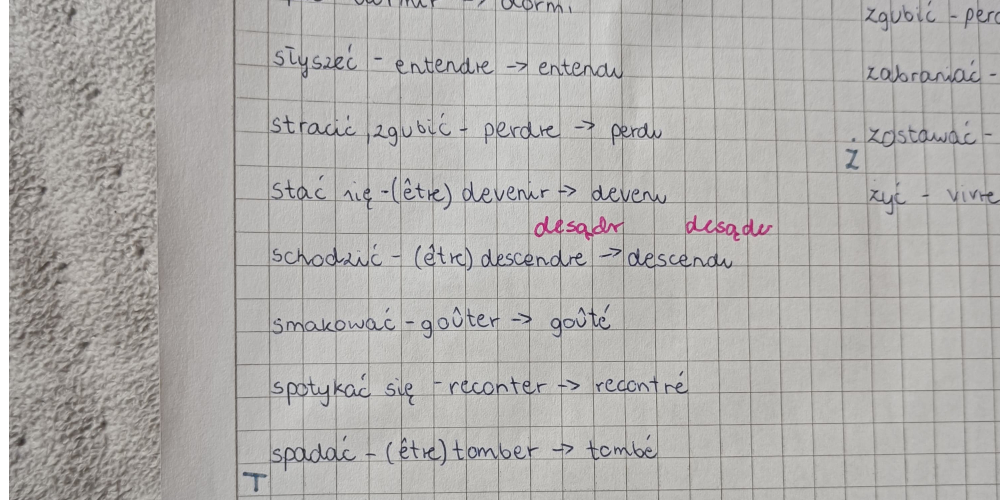 dormi
słyszeć - entendre -> entendu
stracić, zgubić - perdre -> perdu
stać się - (être) devenir -> devenu
desądr desądu
schodzić - (être) descendre -> descendu
smakować - goûter -> goûté
spotykać się - reconter -> recontré
spadać - (être) tomber -> tombé
T
zgubić - perd
zabraniać -
zostawać -
Ż
żyć - vivre